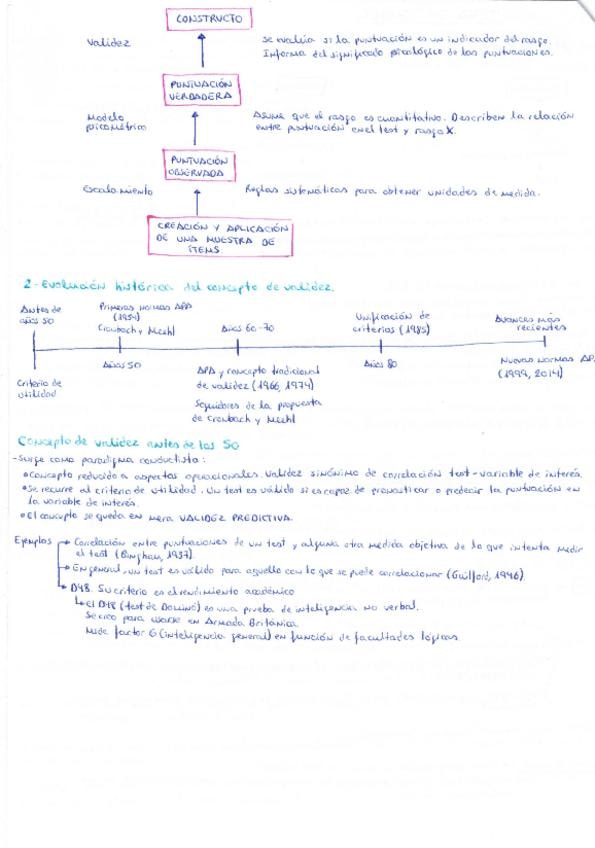 CONSTRUCTO
Validez
Se evalúa si la puntuación es un indicador del rasgo.
Informa del significado psicológico de las puntuaciones.
PUNTUACIÓN
VERDADERA
Modelo
psicométrico
Asume que el rasgo es cuantitativo. Describen la relación
entre puntuación en el test y rasgo X.
PUNTUACIÓN
OBSERVADA
Escalamiento
Reglas sistemáticas para obtener unidades de medida.
CREACIÓN Y APLICACIÓN
DE UNA MUESTRA DE
ÍTEMS
2-Evolución histórica del concepto de validez.
Antes de
años 50
Primeras normas APA
(1954)
Cronbach y Meehl
Años 60-70
Unificación de
criterios (1985)
Avances más
recientes
Criterio de
utilidad
Años 50
APA y concepto tradicional
de validez (1966, 1974)
Seguidores de la propuesta
de Cronbach y Meehl
Años 80
Nuevas normas AP
(1999, 2014)
Concepto de validez antes de los 50
-Surge como paradigma conductista:
•Concepto reducido a aspectos operacionales. Validez sinónimo de correlación test-variable de interés.
•Se recurre al criterio de utilidad. Un test es válido si es capaz de pronosticar o predecir la puntuación en
la variable de interés.
•El concepto se queda en mera VALIDEZ PREDICTIVA.
Ejemplos
Correlación entre puntuaciones de un test y alguna otra medida objetiva de lo que intenta medir
el test (Bingham, 1937).
En general, un test es válido para aquello con lo que se puede correlacionar (Guilford, 1946)
D48. Su criterio es el rendimiento académico
El D48 (test de Dominó) es una prueba de inteligencia no verbal.
Se creó para usarse en Armada Británica
Mide factor G (inteligencia general) en función de facultades lógicas